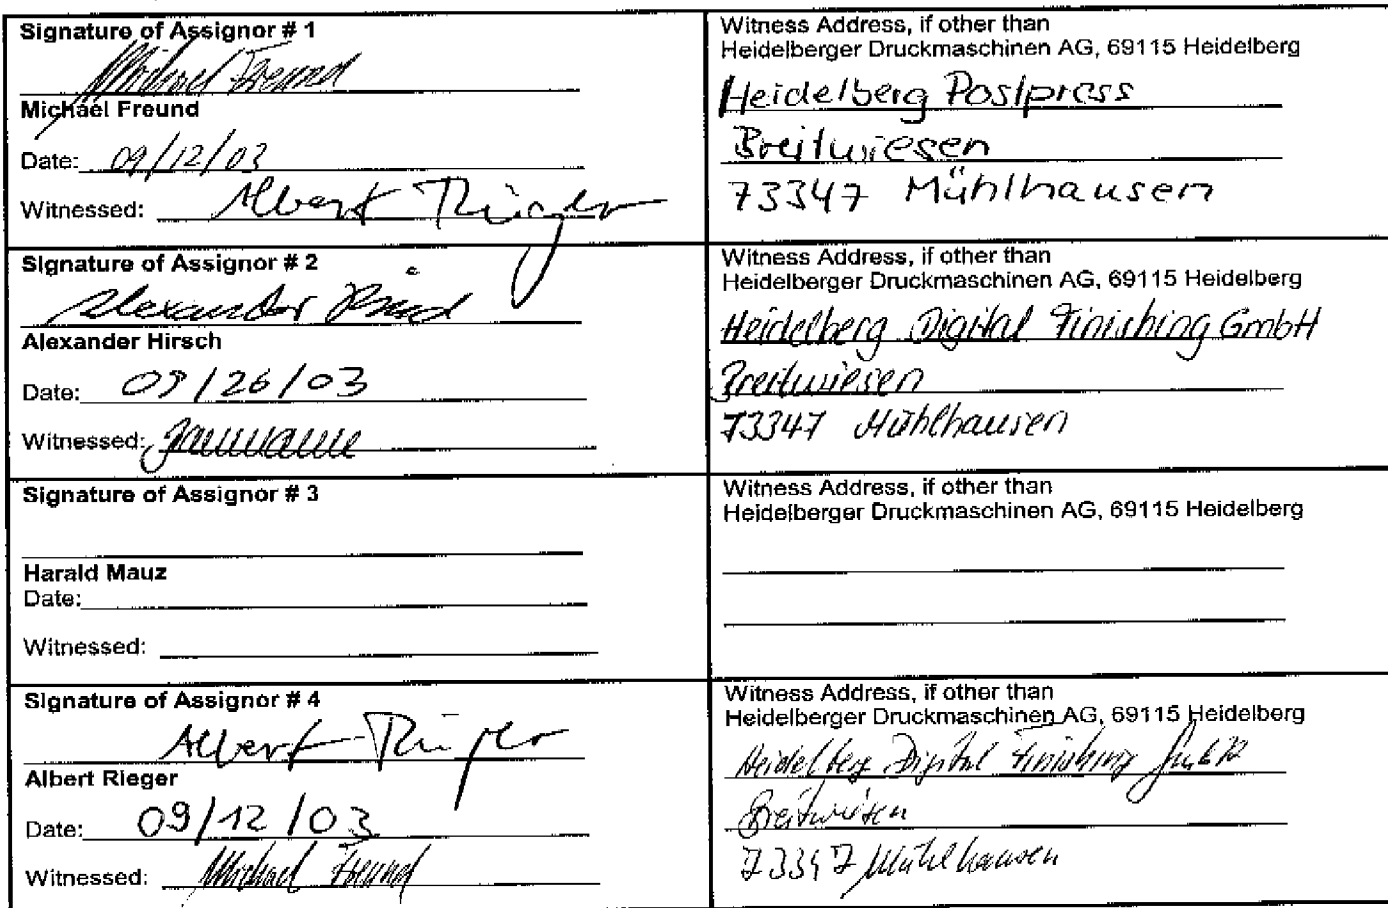 Signature of Assignor # 1
Michael Freund
Michael Freund
Date: 09/12/03
Witnessed: Albert Rieger
Witness Address, if other than
Heidelberger Druckmaschinen AG, 69115 Heidelberg
Heidelberg Postpress
Breitwiesen
73347 Mühlhausen
Signature of Assignor # 2
Alexander Hirsch
Alexander Hirsch
Date: 09/26/03
Witnessed:
Witness Address, if other than
Heidelberger Druckmaschinen AG, 69115 Heidelberg
Heidelberg Digital Finishing GmbH
Breitwiesen
73347 Mühlhausen
Signature of Assignor # 3
Harald Mauz
Date:
Witnessed:
Witness Address, if other than
Heidelberger Druckmaschinen AG, 69115 Heidelberg
Signature of Assignor # 4
Albert Rieger
Albert Rieger
Date: 09/12/03
Witnessed: Michael Freund
Witness Address, if other than
Heidelberger Druckmaschinen AG, 69115 Heidelberg
Heidelberg Digital Finishing GmbH
Breitwiesen
73347 Mühlhausen